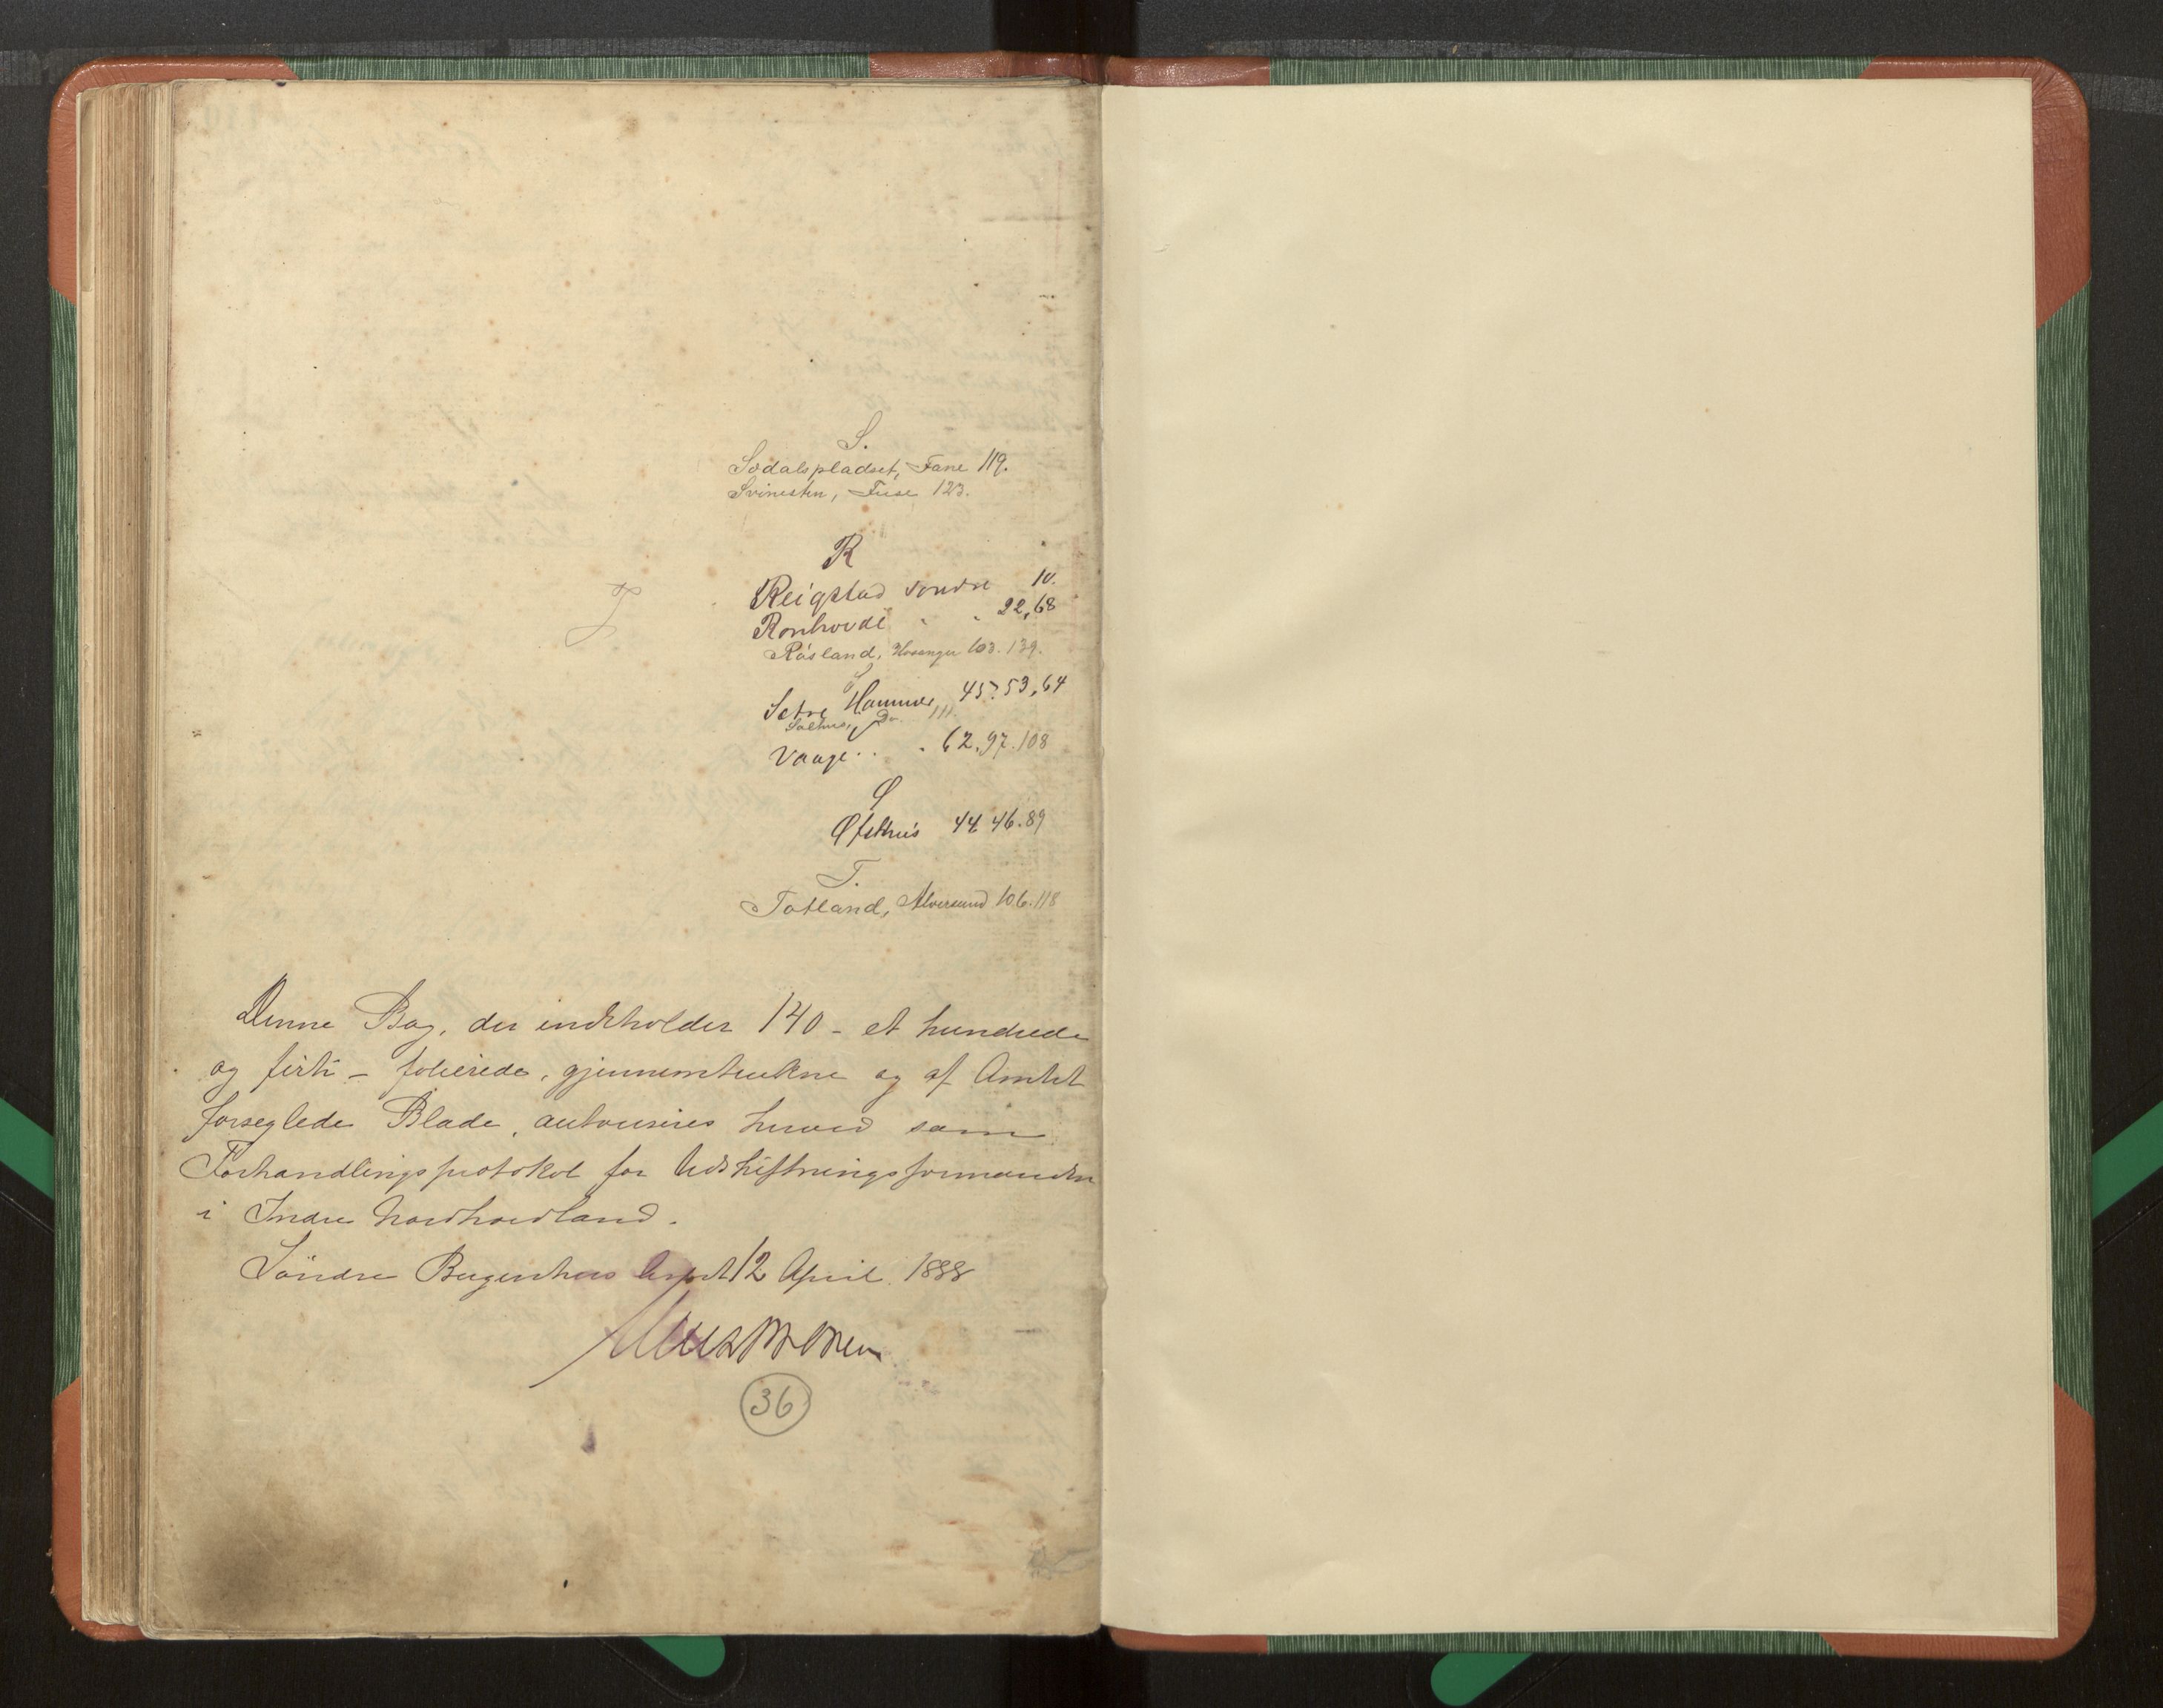 S.
Sødalspladset, Fane 119.
Svinesten, Fuse 123.
R
Reigstad søndre 10.
Ronhovde 22, 68
Røsland, Hosanger 103. 139.
S
Sætre Hammer 45. 53, 64
Do 111.
Vaage . . . 62. 97. 108
Ø
Øfsthus 44 46. 89
T.
Totland, Alversund 106. 118
T
Denne Bog, der indeholder 140 - et hundrede
og firti - folierede, gjennemtrukne og af Amtet
forseglede Blade, autoriseres herved som
Forhandlingsprotokol for Udskiftningsformanden
i Indre Nordhordland.
Søndre Bergenhus Amt 12 April 1888
36